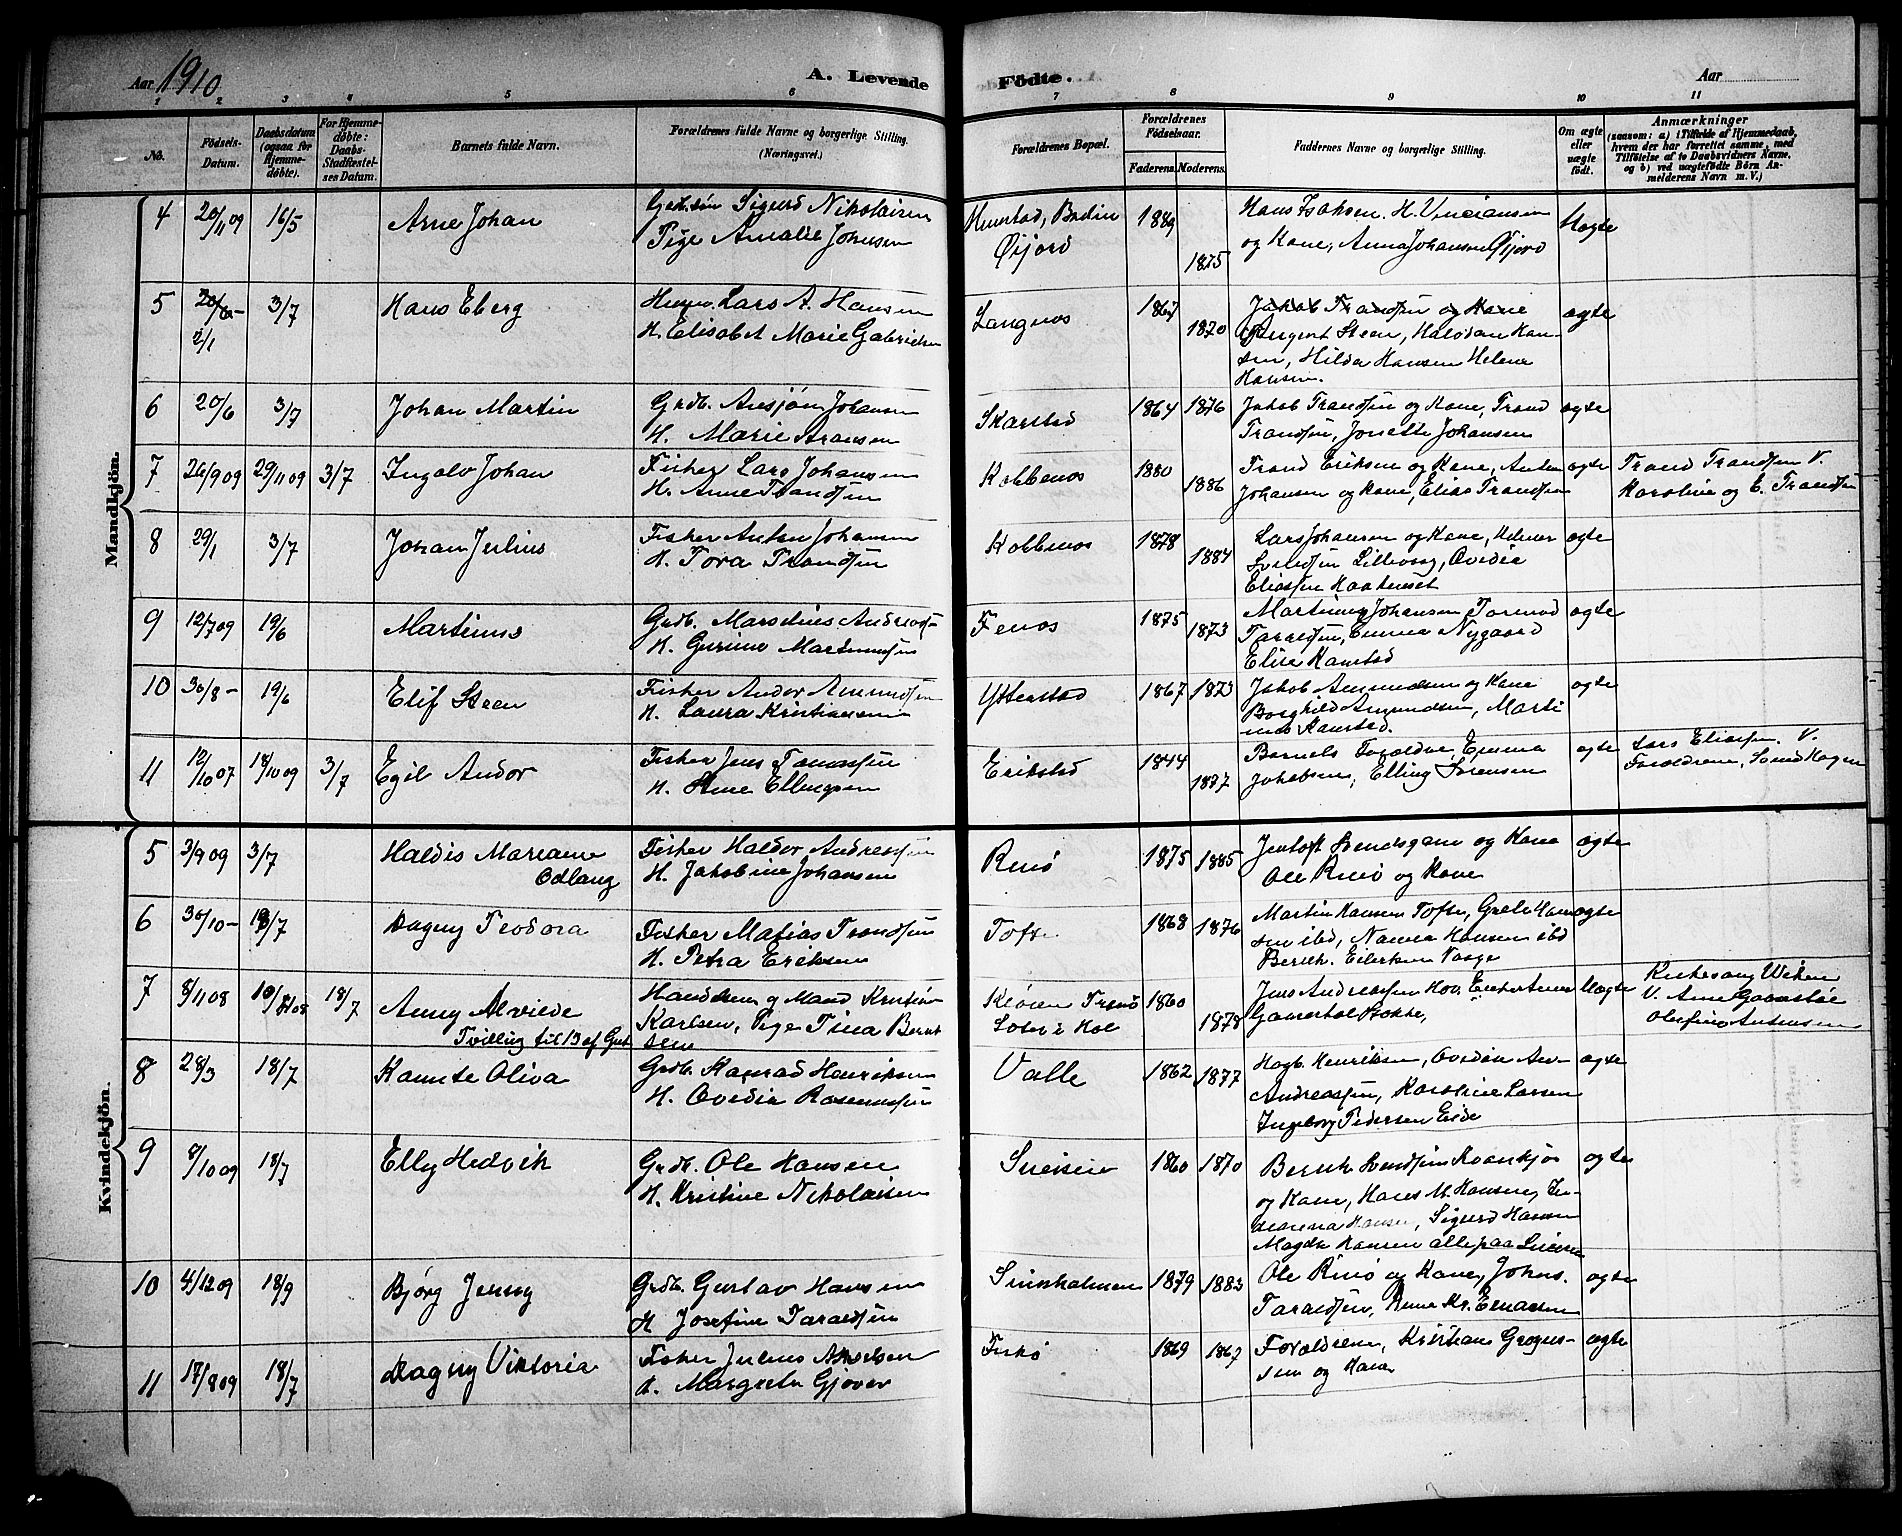 Aar 1910
A. Levende Födte.
Aar
1 2 3 4 5 6 7 8 9 10 11
No.
Födsels-Datum.
Daabsdatum (ogsaa for Hjemme-døbte).
For Hjemme-døbte: Daabs-Stadfæstel-ses Datum.
Barnets fulde Navn.
Forældrenes fulde Navne og borgerlige Stilling.
(Næringsvei.)
Forældrenes Bopæl.
Forældrenes Fødselsaar.
Faderens. Moderens.
Faddernes Navne og borgerlige Stilling.
Om ægte eller uægte født.
Anmærkninger
(saasom: a) i Tilfælde af Hjemmedaab,
hvem der har forrettet samme, med
Tilføielse af to Daabsvidners Navne,
og b) ved uægtefødte Börn An-
melderens Navn m. V.)
Mandkjön.
4 20/11 09 16/5 Arne Johan Sigurd Nikolaisen 1889 Hans Isaksen. H. og Kone, Anna Johansen Øijord Uægte
Pige Amalie Johnsen Øijord 1875
5 2/1 3/7 Hans Eberg Lars A. Hansen Langnes 1867 1870 Jakob Trandsen og Kone ægte
H. Elisabet Marie Gabrielsen Bergent Steen, Halvdan Han-
sen, Hilda Hansen Helena
Hansen.
6 20/6 3/7 Johan Martin Grdb. Johansen Skarstad 1864 1876 Jakob Trandsen og Kone, Trand ægte
H. Marie Aronsen Trandsen, Jonette Johansen
7 26/9 09 29/11 09 3/7 Ingolv Johan Fisker Lars Johansen Kobbenes 1880 Trand Eriksen og Kone, Anton ægte Trand Trandsen V.
H. Anne Trandsen 1886 Johansen og Kone, Elias Trandsen Karoline og E. Trandsen
8 29/1 3/7 Johan Julius Fisker Anton Johansen Kobbenes 1878 Lars Johansen og Kone, Helmer ægte
H. Tora Trandsen 1884 Lillevaag, Ovidia
Eliassen
9 12/7 09 19/6 Martinus Grdb. Marselius Andreassen Fenes 1875 1873 Martinus Johansen Tormod ægte
H. Gurine Martinussen Taraldsen, Emma Nygaard
Elise Kanstad
10 30/8 - 19/6 Elif Steen Fisker Andor Amundsen Ytterstad 1867 1873 Jakob Amundsen og Kone ægte
H. Laura Kristiansen Borghild Amundsen, Marti
nus Kanstad.
11 12/10 07 18/10 09 3/7 Egil Andor Fisker Jens Tomassen Erikstad 1844 Barnets Forældre, Emma ægte Lars Eliassen. V.
H. Ellingsen 1877 Jakobsen, Elling Sørensen Forældrene,
Kvindekjön.
5 3/9 09 3/7 Haldis Mariane Fisker Haldor Andreassen Rinø 1875 1885 Jentoft og Kone ægte
Odlaug H. Jakobine Johansen Ole Rinø og Kone
6 30/10 - 3/7 Dagny Teodora Fisker Matias Trandsen Tofte 1868 1876 Martin Hansen Tofte, Grete Han ægte
H. Petra Eriksen sen ibd, Hansen ibd
Bernh. Eilertsen Vaage
7 8/11 08 18/7 Anny Alvilde g Mand Kristian 1860 Jens Andreassen Uægte
Tvilling til 13 af Gut Karlsen, Pige Tina Bernt 1878
sen Antonsen
8 28/3 18/7 Kamte Oliva Grdb. Konrad Henriksen Valle 1862 1877 Hagb. Henriksen, Ovidia An- ægte
H. Ovidia Rasmussen Andreassen, Karoline Larsen
Ingeborg Pedersen Eide
9 8/10 09 18/7 Elly Hedvik Grdb. Ole Hansen 1860 1870 Bernh. ægte
H. Kristine Nikolaisen og Kone, Hans M. Hansen,
Hansen, Sigurd Hansen
Magda Hansen alle paa
10 4/12 09 18/9 Bjørg Jenny Grdb. Gustav Hansen 1879 1883 Ole Rinø og Kone, Johns. ægte
H. Josefine Taraldsen Taraldsen,
11 17/8 09 18/7 Dagny Viktoria Fisker Julius 1869 1867 Forældrene, Kristian Gregus- ægte
H. Margrete Gjøver sen og Kone